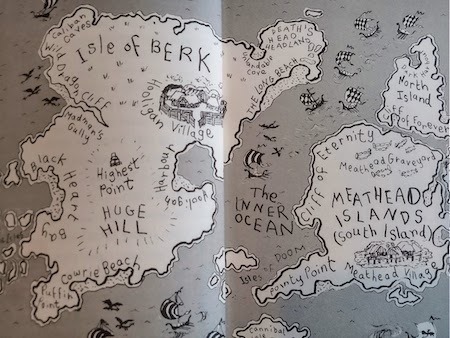 Caliban
Caves
Isle of BERK
Wild Dragon Cliff
Madmen's
Gully
Hooligan
Village
DEATH'S
HEAD
HEADLAND
Unlandable
Cove
THE LONG BEACH
North
Island
Cliff of Eternity
Meathead Graveyard
MEATHEAD
ISLANDS
(South Island)
Meathead Village
Black
Heart
Bay
Highest
Point
HUGE
HILL
Hooligan
Harbour
The
INNER
OCEAN
Isles of DOOM
Pointy Point
Cowrie Beach
Puffin
Point
Cannibal